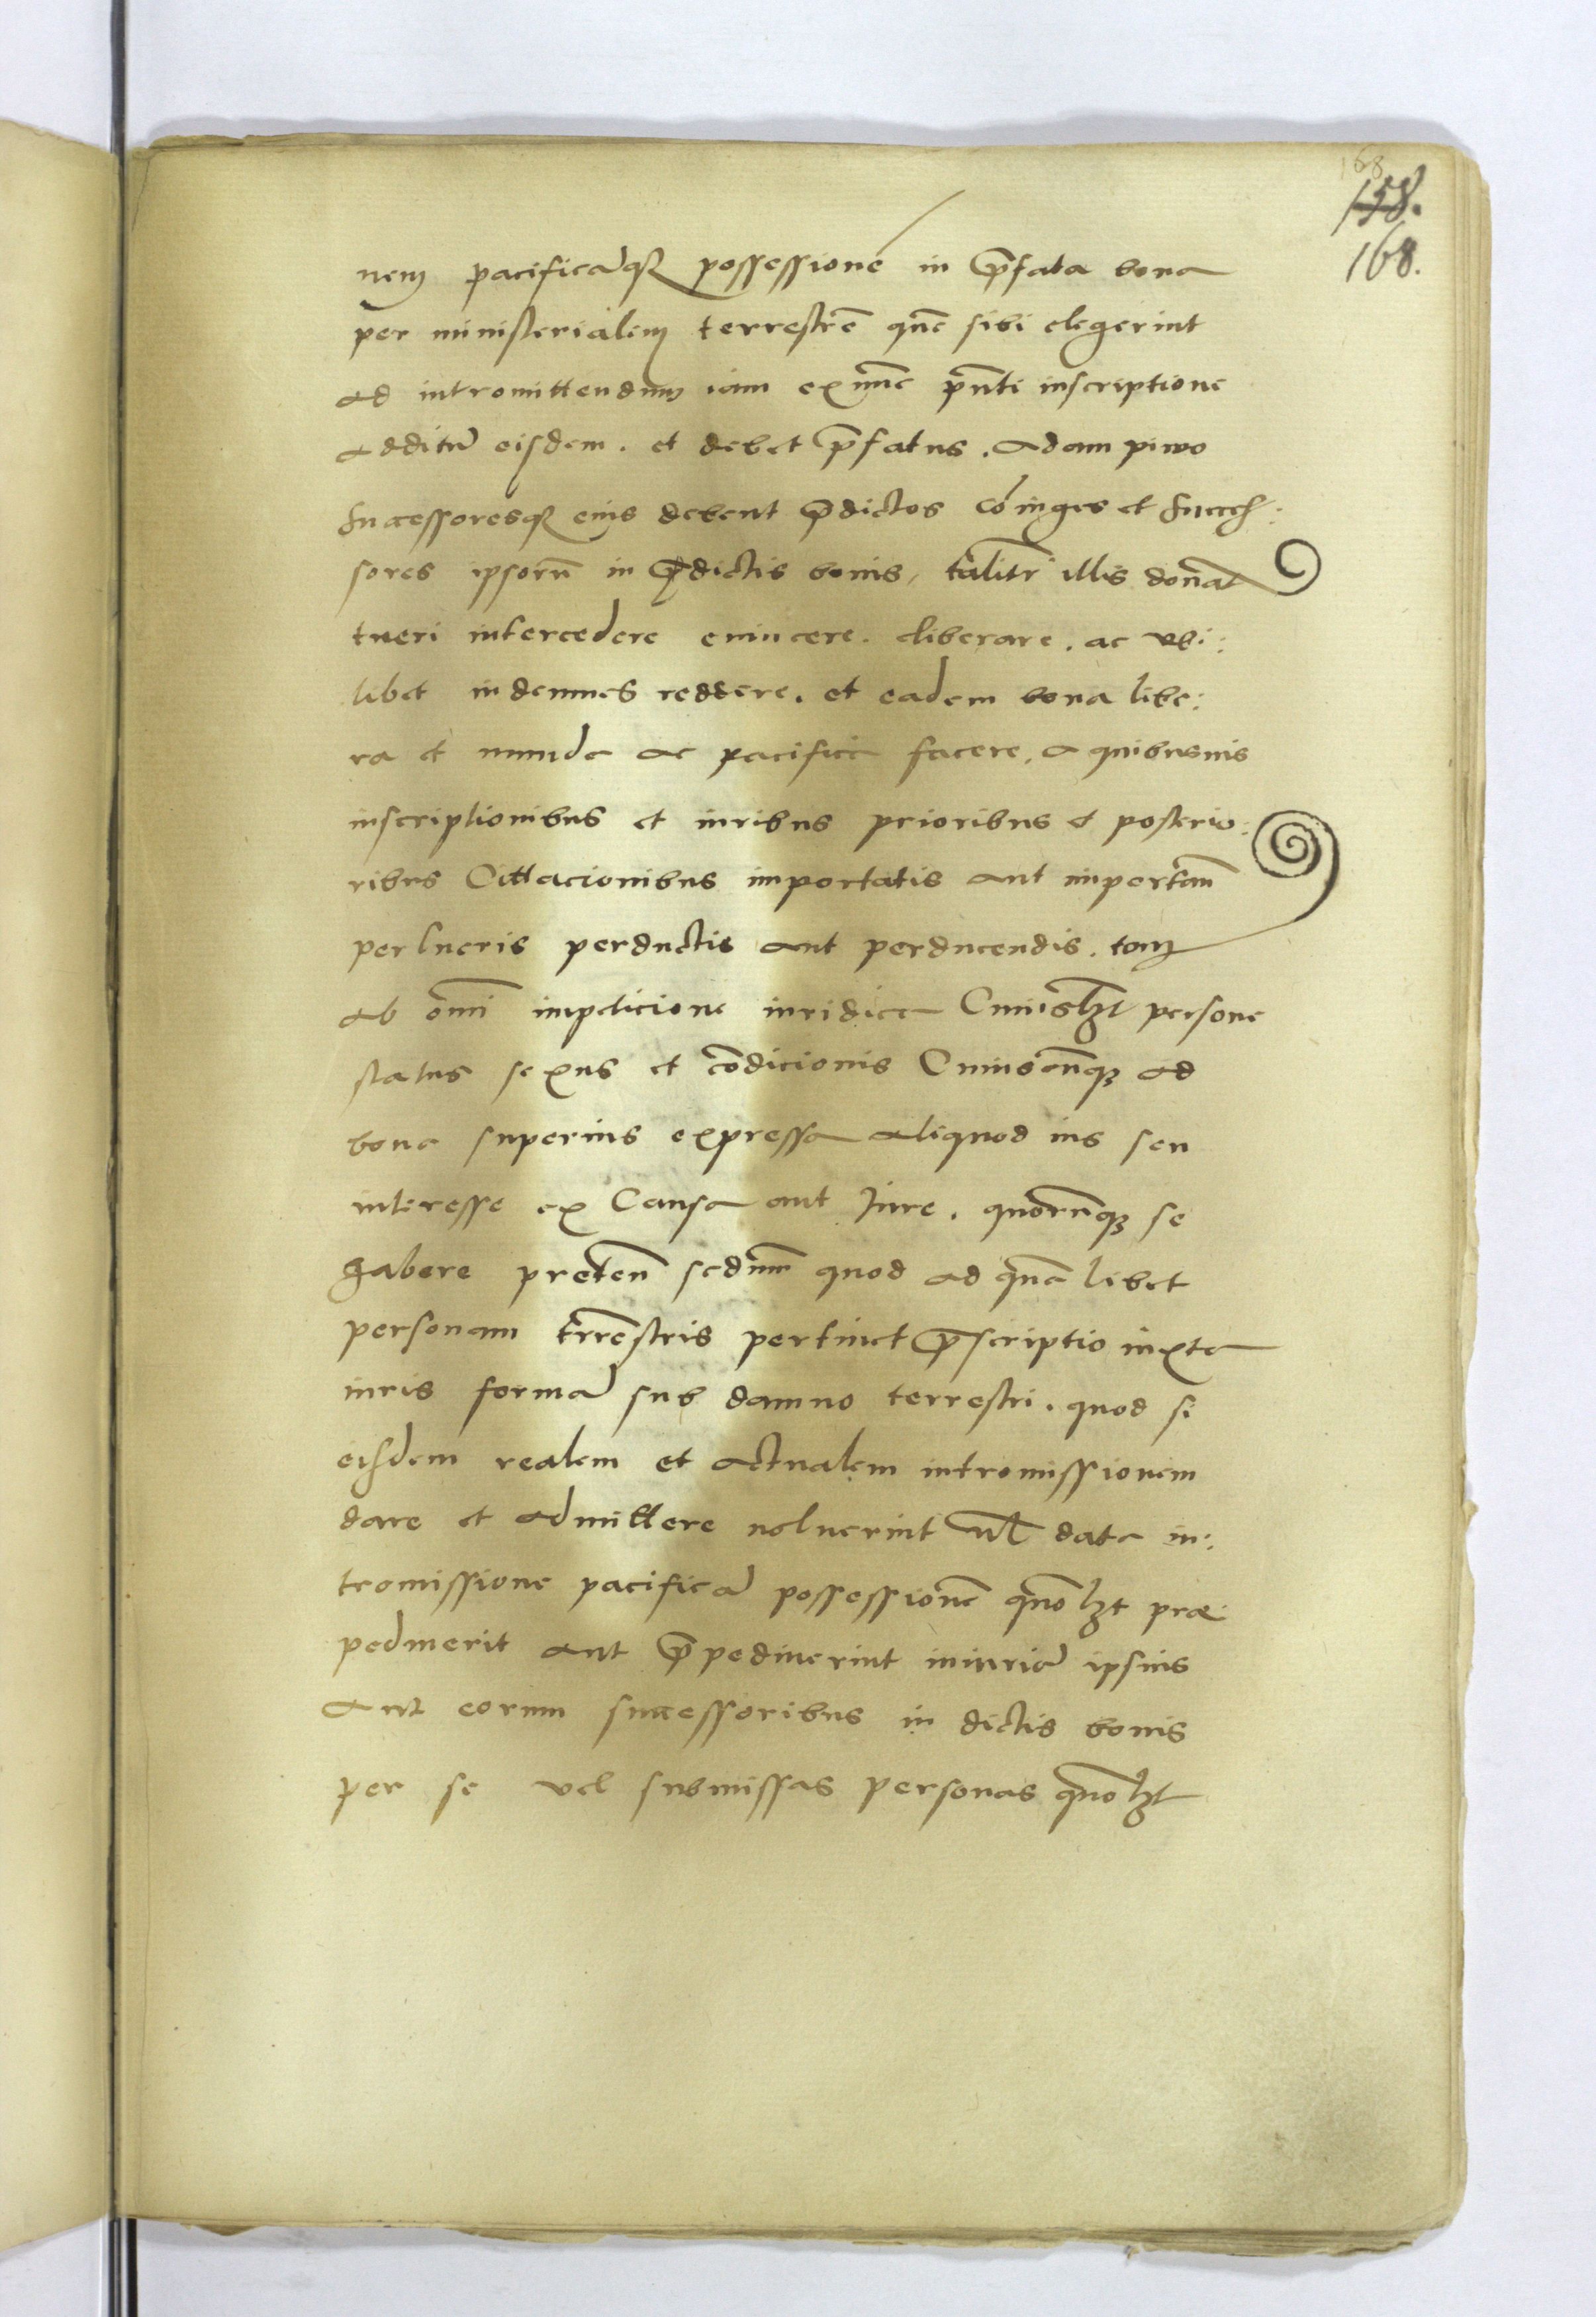 168
158.
168.
nem pacificãq₃ possessionẽ in p̃fata bona
per ministerialem terrestrẽ quẽ sibi elegerint
ad intromittendum iam ex nũc pñti inscriptione
additur eisdem. et debet p̃fatus. Adam piwo
Successoresq₃ eius debent p̃dictos cõiuges et Succes:
sores ipsorũ in p̃dictis bonis, talitr̃ illis donat
tueri intercedere euincere. eliberare. ac vbi:
libet indemnes reddere. et eadem bona libe:
ra et munda ac pacifica facere, a quibusuis
inscriptionibus et iuribus prioribus et posterio:
ribus Cittacionibus importatis aut importañ
perlucris perductis aut perducendis. tam
ab om̃i impeticione iuridica Cuiusl₃t persone
status sexus et cõdicionis Cuiuscũq₃ ad
bona superius expressa aliquod ius seu
interesse ex Causa aut Jure. quorũq₃ se
habere preteñ sedum̃ quod ad quã libet
personam tr̃restris pertinet p̃scriptio iuxta
iuris formã sub damno terrestri. quod si
eisdem realem et actualem intromissionem
dare et admittere noluerint ul̃ data in:
tromissione pacificã possessionẽ quõl₃t præ:
pedierit aut p̃pediuerint iniuriã ipsius
aut eorum successoribus in dictis bonis
per se vel submissas personas quõl₃t